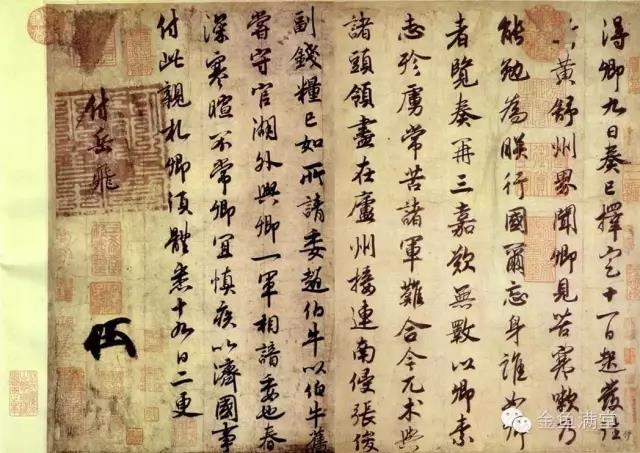 得卿九日奏已擇定十一日起發往
黃舒州界聞卿見苦寒嗽乃
能勉為朕行國爾忘身誰如卿
者覽奏再三嘉歎無斁以卿素
志殄虜常苦諸軍難合今兀朮與
諸頭領盡在廬州接連南侵張俊
副錢糧已如所請委趙伯牛以伯牛舊
嘗守官湖外與卿一軍相諳委也春
深寒暄不常卿宜慎疾以濟國事
付此親札卿須體悉十九日二更
付岳飛
金鱼满堂